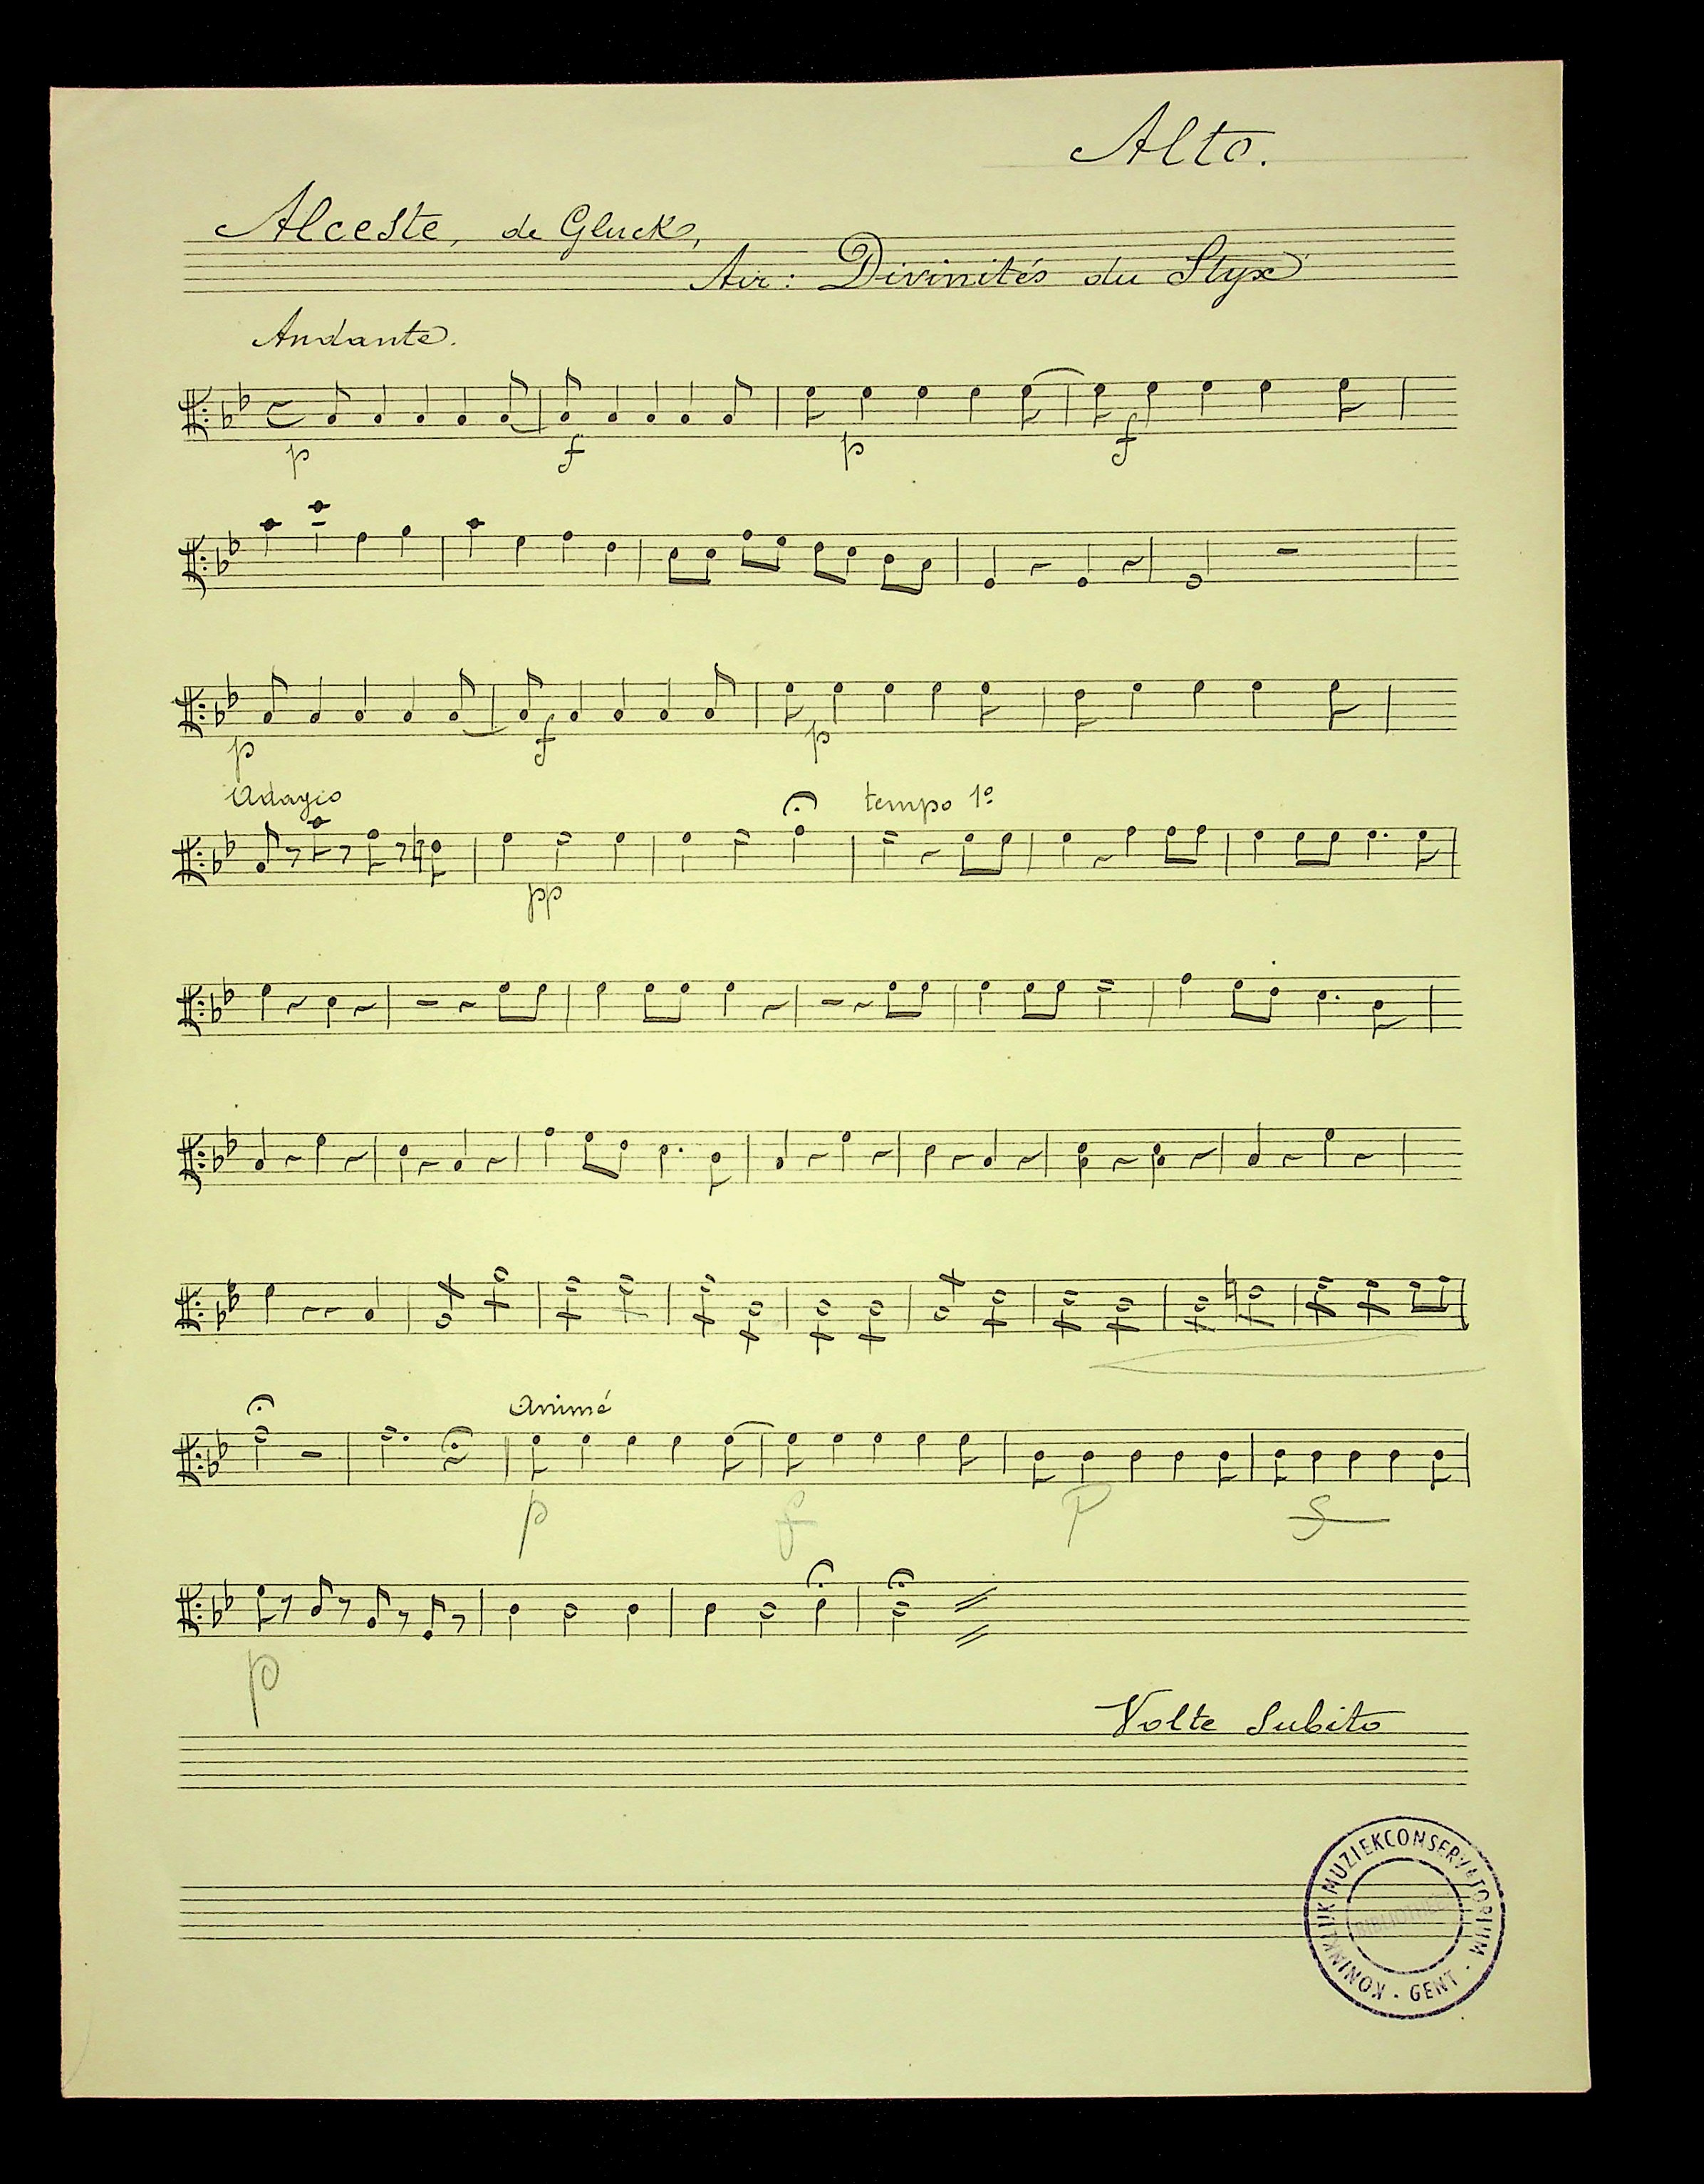 Alto.
Alceste, de Gluck,
Air: Divinités du Styx
Andante.
p f p f
p f p
Adagio tempo 1º
pp
animé
p f P f
p
Volte Subito
KONINKLIJK MUZIEKCONSERVATORIUM · GENT ·
BIBLIOTHEEK